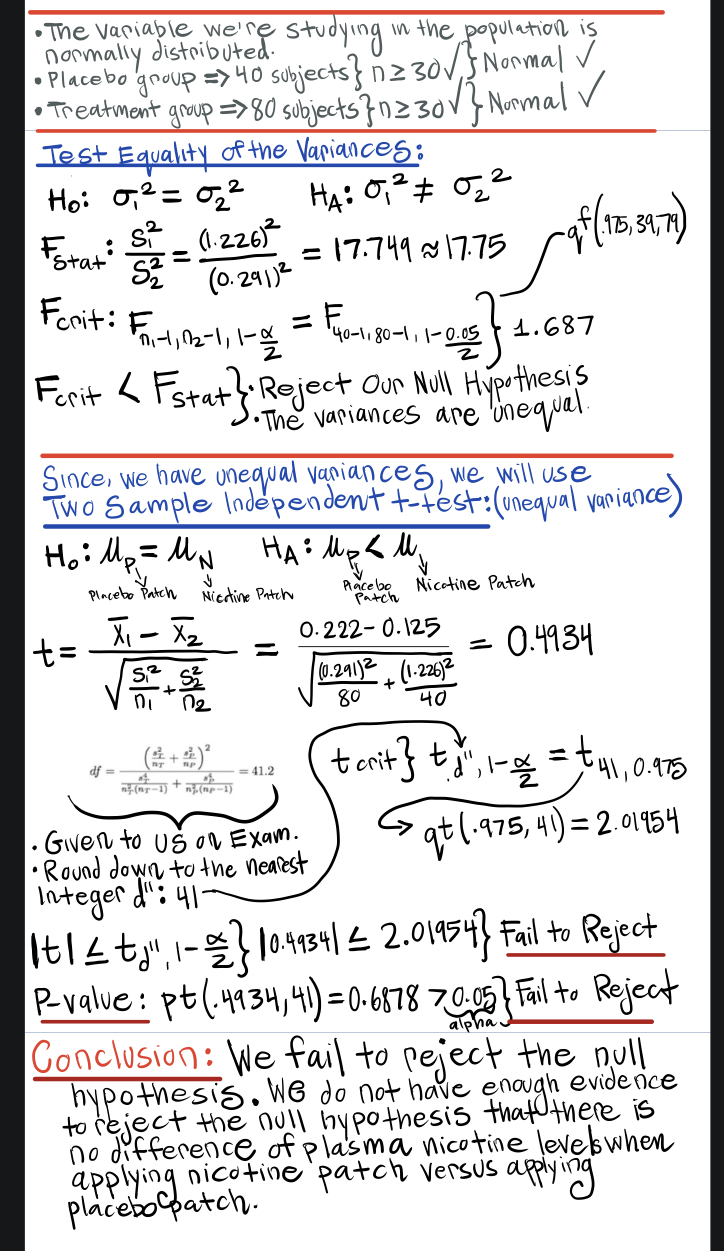 • The Variable we're studying in the population is
normally distributed.
• Placebo group => 40 subjects} n ≥ 30 √} Normal ✓
• Treatment group => 80 subjects} n ≥ 30 √} Normal ✓
Test Equality of the Variances:
H₀: σ₁² = σ₂² H_A: σ₁² ≠ σ₂²
F_stat: S₁²/S₂² = (1.226)²/(0.291)² = 17.749 ≈ 17.75
qf(.975, 39, 79)
F_crit: F_{n₁-1, n₂-1, 1-α/2} = F_{40-1, 80-1, 1-0.05/2} } 1.687
F_crit < F_stat} • Reject Our Null Hypothesis
• The variances are unequal.
Since, we have unequal variances, we will use
Two Sample Independent t-test: (unequal variance)
H₀: μ_P = μ_N H_A: μ_P < μ
Placebo Patch Nicotine Patch Placebo Patch Nicotine Patch
t = (x̄₁ - x̄₂)/√(S₁²/n₁ + S₂²/n₂) = (0.222 - 0.125)/√((0.291)²/80 + (1.226)²/40) = 0.4934
df = (s_T²/n_T + s_P²/n_P)² / (s_T⁴/n_T²(n_T-1) + s_P⁴/n_P²(n_P-1)) = 41.2
t crit} t_{d'', 1-α/2} = t_{41, 0.975}
qt(.975, 41) = 2.01954
• Given to us on Exam.
• Round down to the nearest
Integer d'': 41
|t| ≤ t_{d'', 1-α/2} } |0.4934| ≤ 2.01954} Fail to Reject
P-value: pt(.4934, 41) = 0.6878 > 0.05} Fail to Reject
alpha
Conclusion: We fail to reject the null
hypothesis. We do not have enough evidence
to reject the null hypothesis that there is
no difference of plasma nicotine levels when
applying nicotine patch versus applying
placebo patch.